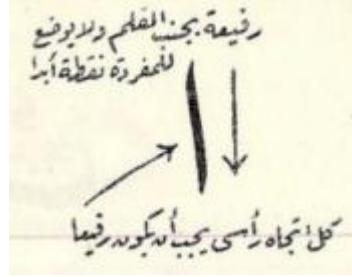 رفيعة بجنب القلم ولا يوضع
للمفردة نقطة أبدا
كل اتجاه رأسى يجب أن يكون رفيعا